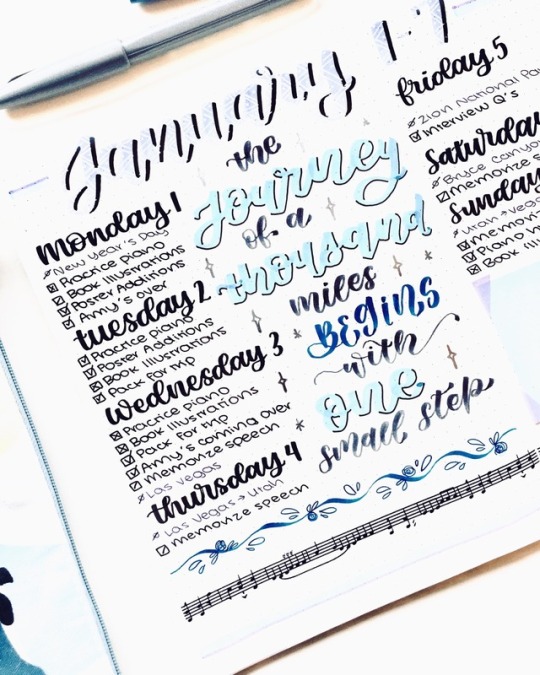 January 1-7
monday 1
New Year's Day
Practice piano
Book Illustrations
Poster Additions
Amy's over
tuesday 2
Practice piano
Poster Additions
Book Illustrations
Pack for trip
wednesday 3
Practice piano
Book Illustrations
Pack for trip
Amy's coming over
memorize speech
Las Vegas
thursday 4
Las Vegas → Utah
memorize speech
the
Journey
of a
thousand
miles
BEGINS
with
one
small step
friday 5
Zion National
Interview Q's
saturday
Bryce Canyon
memorize
sunday
Utah → Vegas
memori
Piano
Book